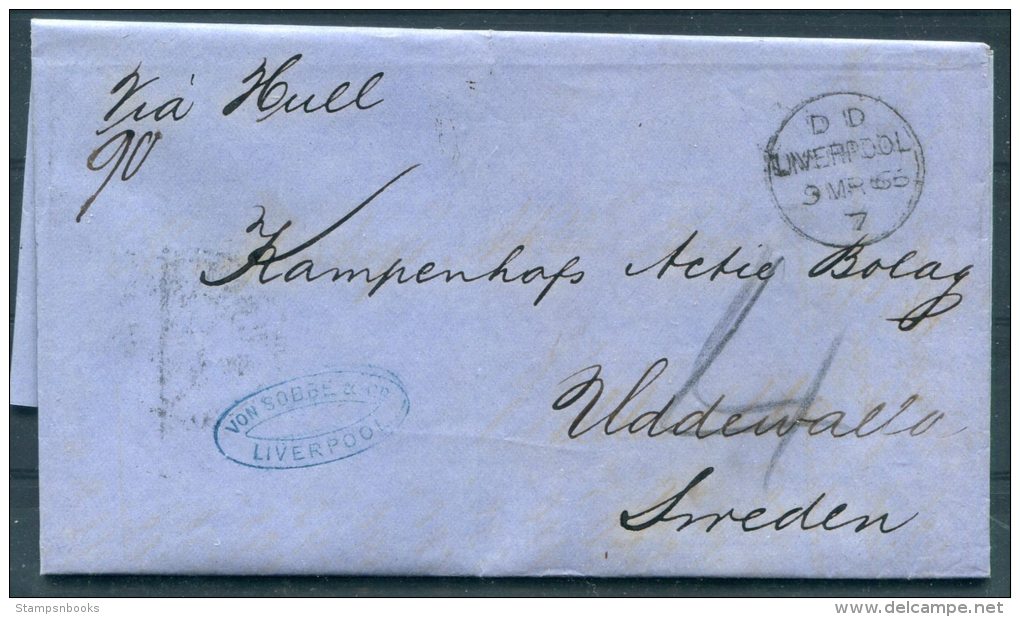 Viá Hull
90
D D
LIVERPOOL
9 MR 65
7
Kampenhofs Actie Bolag
4
Uddewalla
Sweden
VON SOBBE & CO
LIVERPOOL
Stampsnbooks
www.delcampe.net